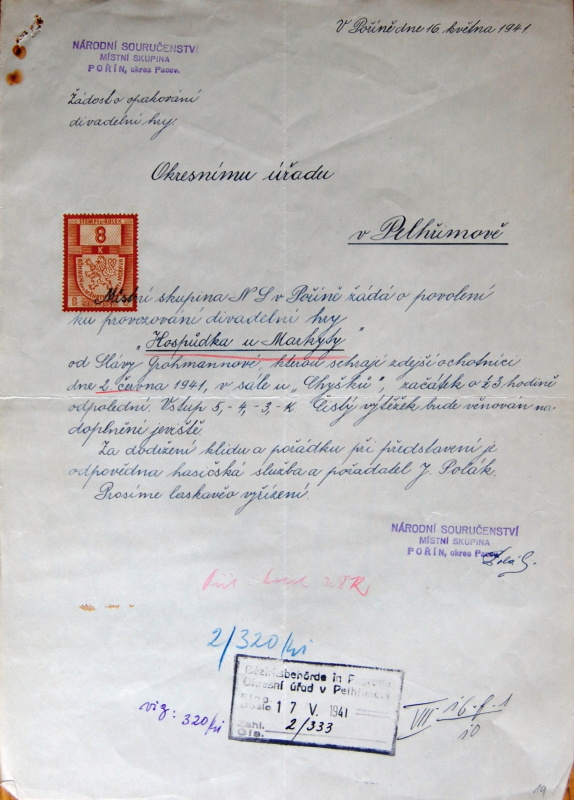 V Poříně dne 16. května 1941.
NÁRODNÍ SOURUČENSTVÍ
MÍSTNÍ SKUPINA
POŘÍN, okres Pacov.
Žádost o opakování
divadelní hry.
Okresnímu úřadu
v Pelhřimově
8
K
Místní skupina NS v Poříně žádá o povolení
ku provozování divadelní hry
"Hospůdka u Markyty"
od Slávy Grohmannové, kterou sehrají zdejší ochotníci
dne 2. června 1941, v sále u "Chyšků", začátek o ½3 hodině
odpolední. Vstup 5,- 4,- 3,- K. Čistý výtěžek bude věnován na
doplnění jeviště.
Za dodržení klidu a pořádku při představení je
odpovědna hasičská služba a pořadatel J. Polák.
Prosíme laskavěo vyřízení.
NÁRODNÍ SOURUČENSTVÍ
MÍSTNÍ SKUPINA
POŘÍN, okres Pacov.
2/320/41
Bezirksbehörde in
Okresní úřad v Pelhřimově
17 V. 1941
Zahl.
Čís. 2/333
viz: 320/41
VII-16-f-1
10
19